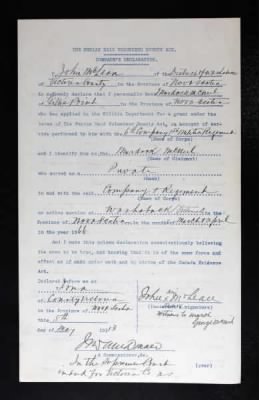 THE FENIAN RAID VOLUNTEER BOUNTY ACT.
COMRADE'S DECLARATION.
I, John McLean of
Victoria County in the Province of Nova Scotia
do solemnly declare that I personally knew
in the Province of Nova Scotia
who applied to the Militia Department for a grant under the
terms of the Fenian Raid Volunteer Bounty Act, on account of ser-
vice performed by him with the 6th Company Regiment
(Name of Corps)
and I identify him as the Murdock McNeil
(Name of Claimant)
who served as a Private
(Rank)
in and with the said Company & Regiment
(Name of Corps)
on active service at Washabuck
Province of Nova Scotia, in the months March & April
in the year 1866
And I make this solemn declaration conscientiously believing
the same to be true, and knowing that it is of the same force and
effect as if made under oath and by virtue of the Canada Evidence
Act.
Declared before me at
Iona
County Victoria
in the Province of Nova Scotia
this
day of May 1913
John McLean
(Declarant's signature)
Witness to signed
A Commissioner, &c.
In the Supreme Court
and for Victoria Co
(over)